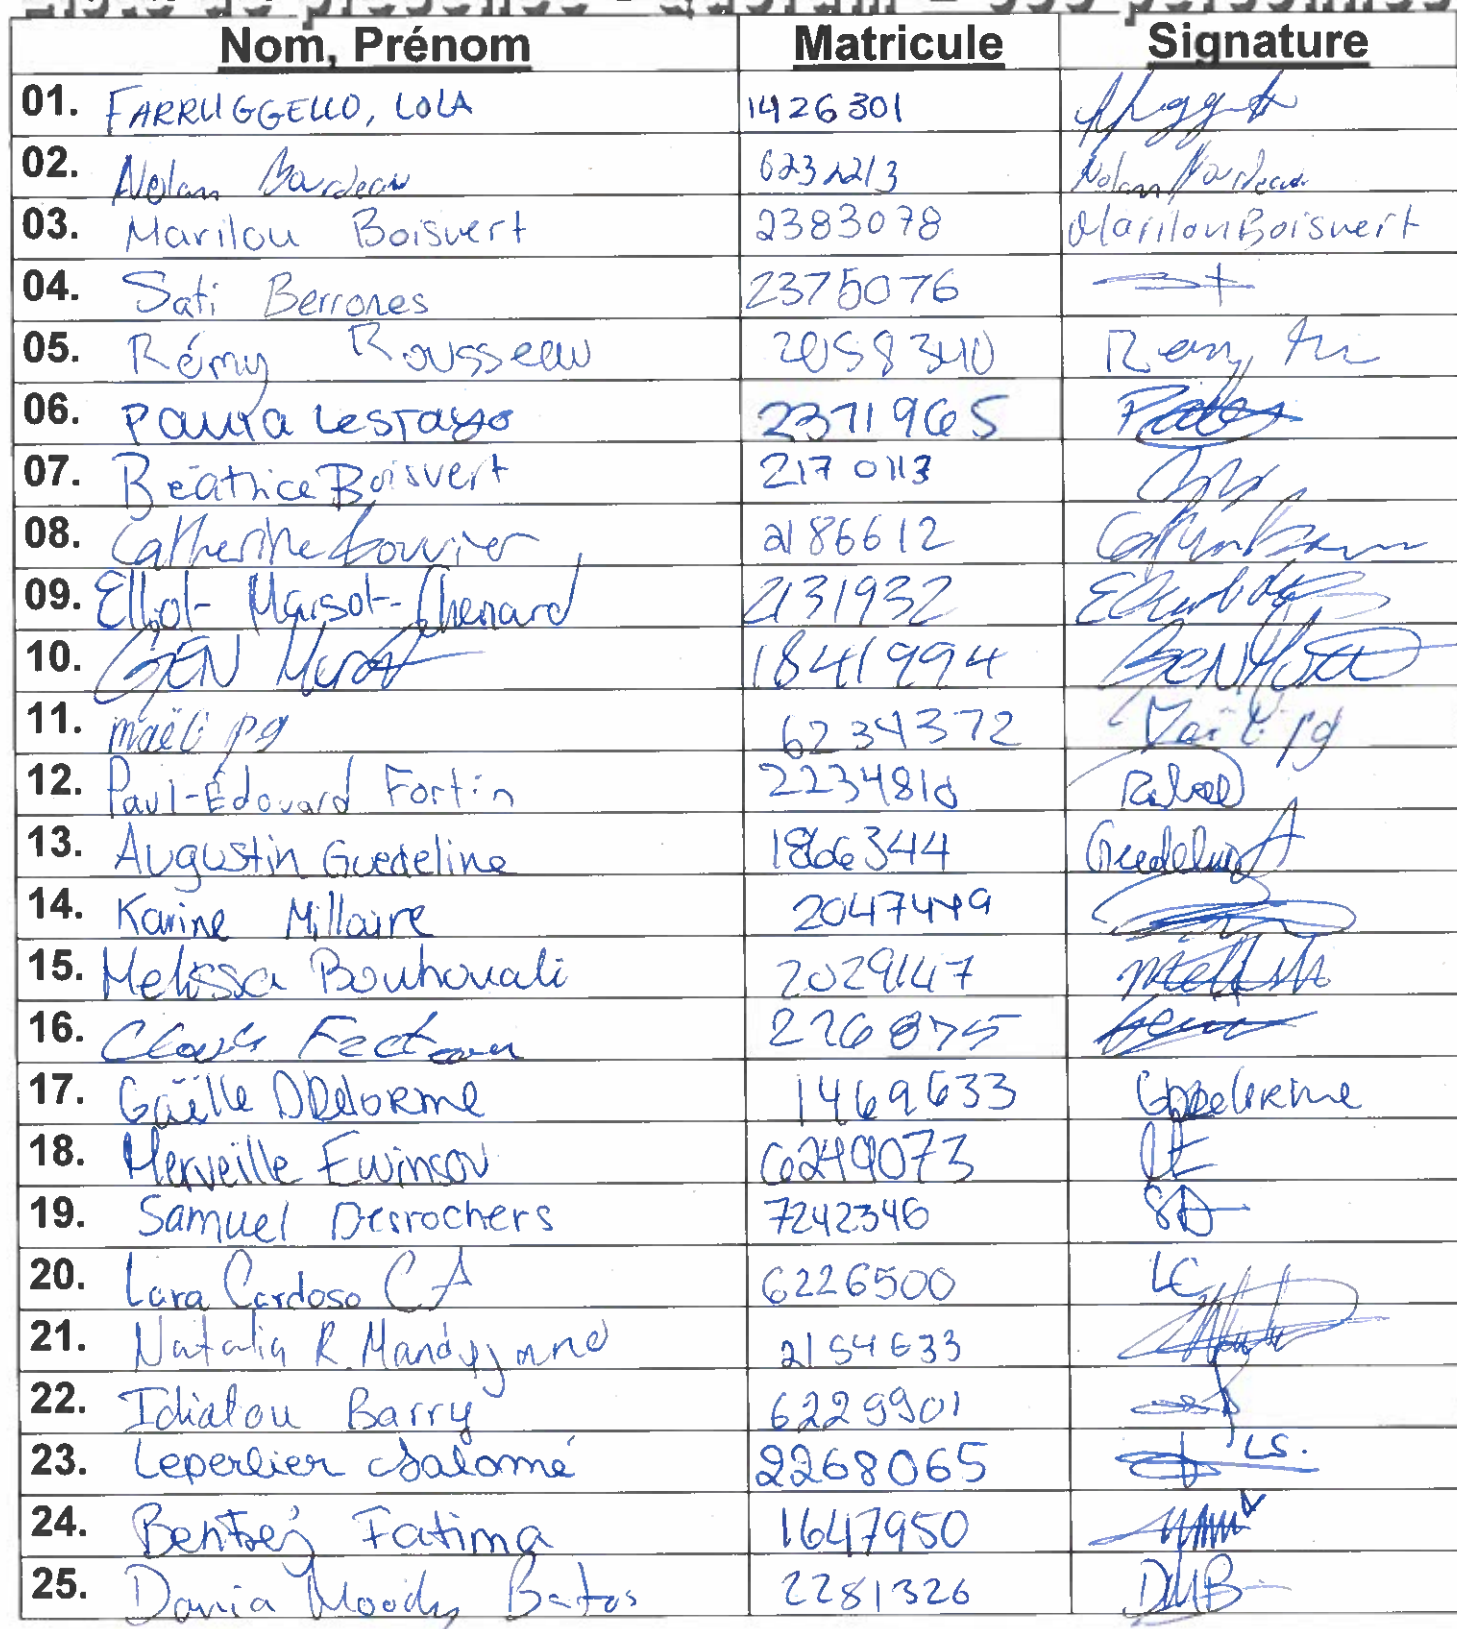 Liste de présence - quorum = personnes
Nom, Prénom Matricule Signature
01. FARRUGGELLO, LOLA 1426301
02. Nolan Bardeau 6231213 Nolan Bardeau
03. Marilou Boisvert 2383078 Marilou Boisvert
04. Sati Berrones 2375076
05. Rémy Rousseau 2058340
06. Paula Lestayo 2371965
07. Béatrice Boisvert 2170113
08. Catherine Bouvier 2186612
09. Elliot Marsot-Chenard 2131932
10. 1841994
11. maëli pg 6234372 Maëli pg
12. Paul-Édouard Fortin 2234810
13. Augustin Guedeline 1866344
14. Karine Millaire 2047449
15. Melissa Bouhouali 2029147
16. Fecteau 2268755
17. Gaëlle DDelorme 1469633 GDDelorme
18. Merveille Ewinsou 6249073
19. Samuel Desrochers 7242346 SD
20. Lara Cardoso CA 6226500 LC
21. Natalia R. 2154633
22. Idiatou Barry 6229901
23. Leperlier Salomé 2268065 LS.
24. Fatima 1647950
25. Dania Moody 2281326 DMB